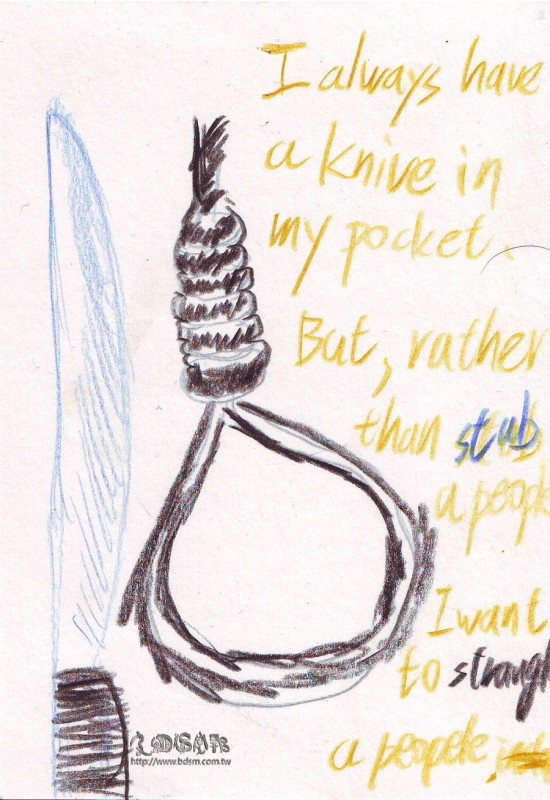 I always have
a knive in
my pocket.
But, rather
than stub
a people
I want
to
a people
http://www.bdsm.com.tw